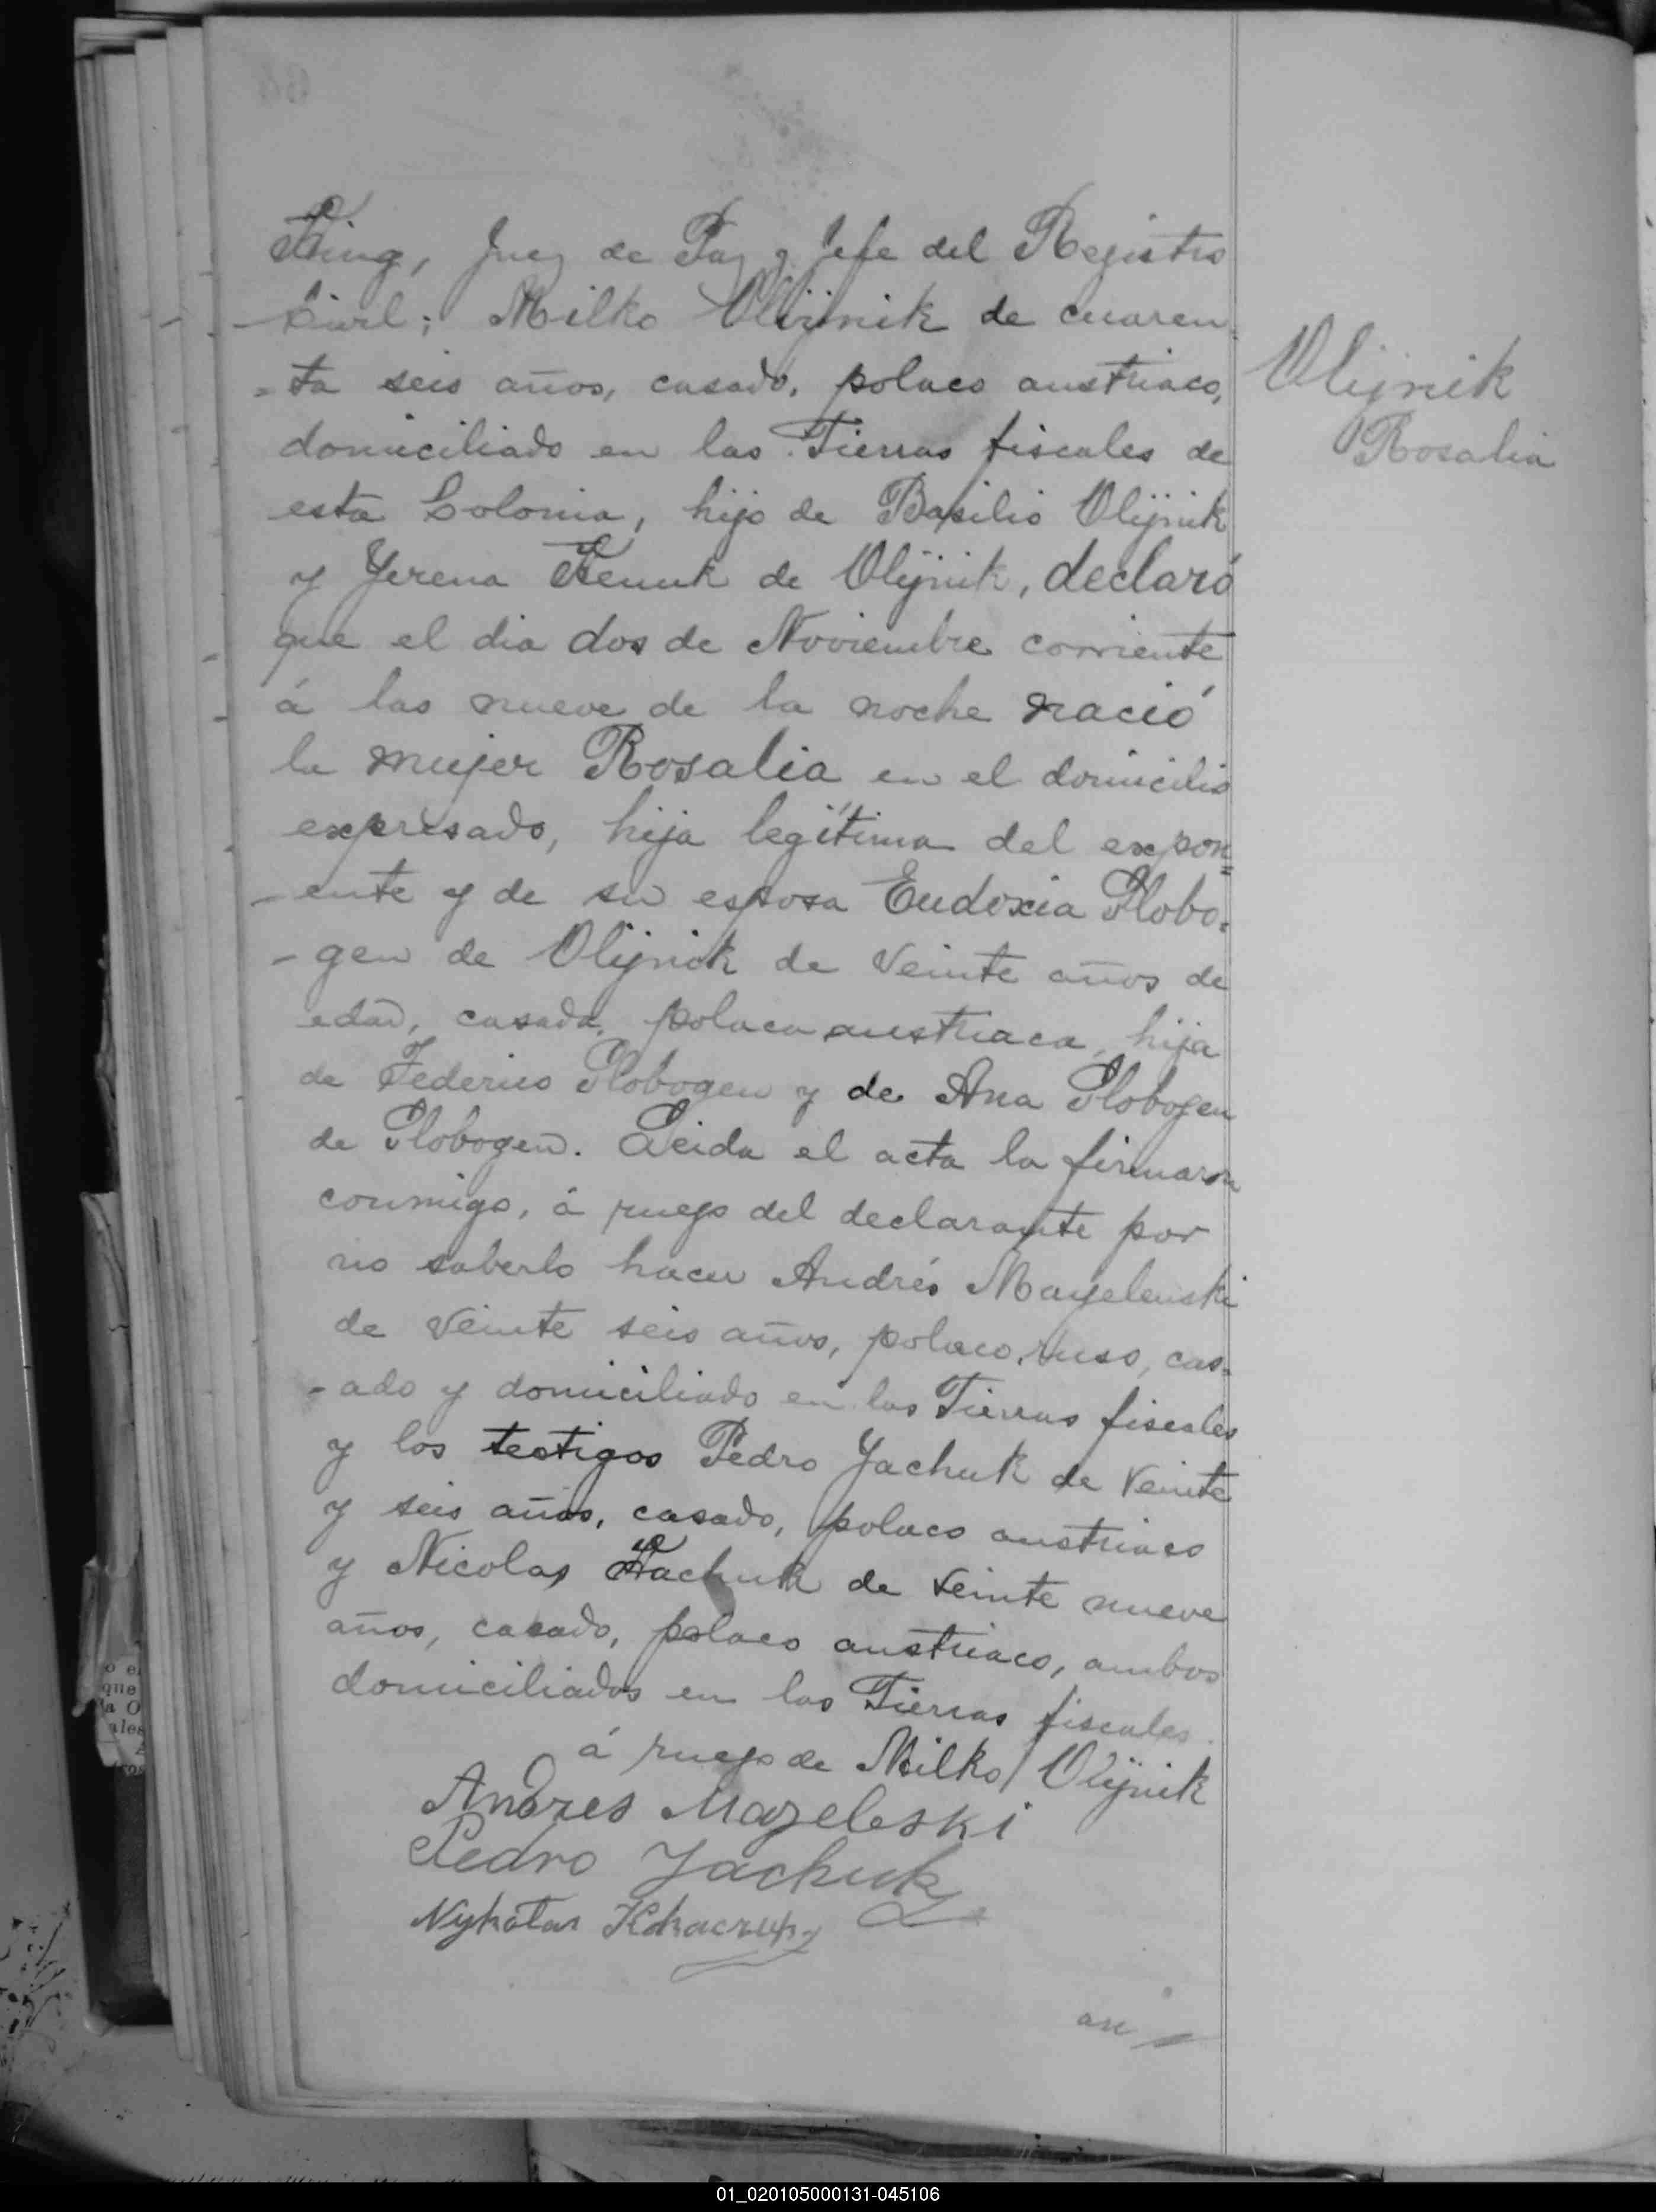 King, Juez de Paz y Jefe del Registro
Civil; Milko Olijnik de cuaren-
-ta seis años, casado, polaco austriaco,
domiciliado en las Tierras fiscales de
esta Colonia, hijo de Basilio Olijnik
y Yerena de Olijnik, declaró
que el dia dos de Noviembre corriente
á las nueve de la noche nació
la mujer Rosalia en el domicilio
expresado, hija legítima del expon=
-ente y de su esposa Eudoxia Slobo-
-gen de Olijnik de veinte años de
edad, casada, polaca austriaca, hija
de Federico Slobogen y de Ana Slobogen
de Slobogen. Leida el acta la firmaron
conmigo, á ruego del declarante por
no saberlo hacer Andrés Mayelenski
de veinte seis años, polaco, ruso, cas-
-ado y domiciliado en las Tierras fiscales
y los testigos Pedro Jachuk de veinte
y seis años, casado, polaco austriaco
y Nicolas Kachuk de veinte nueve
años, casado, polaco austriaco, ambos
domiciliados en las Tierras fiscales.
á ruego de Milko Olijnik
Andres Mazeleski
Pedro Jachuk
Olijnik
Rosalia
o el
que
a O
ales
01_020105000131-045106